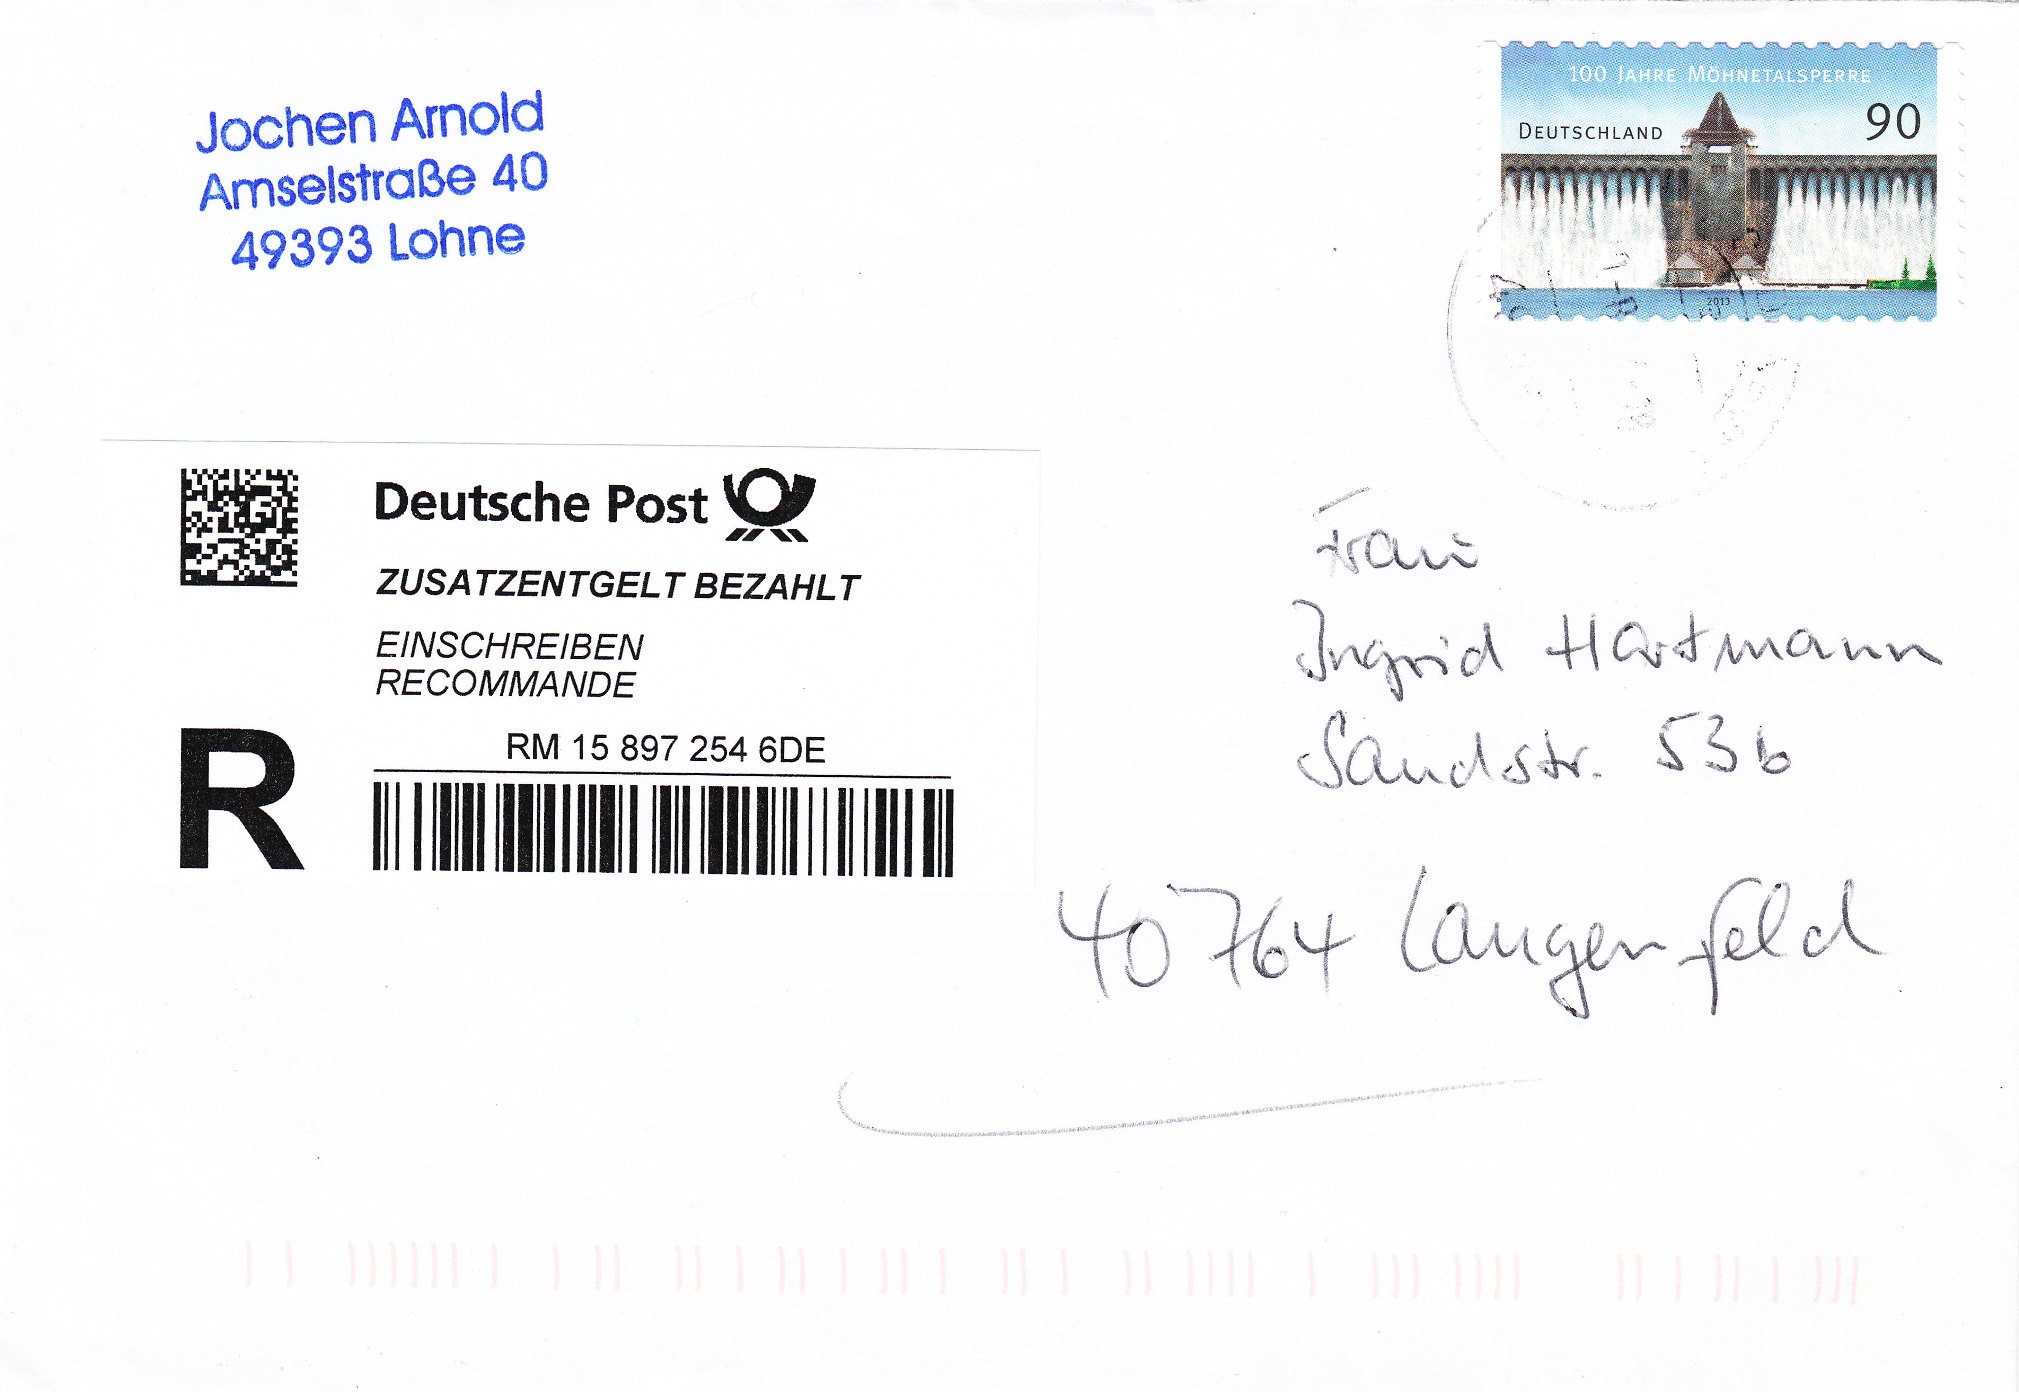 Jochen Arnold
Amselstraße 40
49393 Lohne
100 JAHRE MÖHNETALSPERRE
DEUTSCHLAND 90
2013
Deutsche Post
ZUSATZENTGELT BEZAHLT
EINSCHREIBEN
RECOMMANDE
R
RM 15 897 254 6DE
Frau
Ingrid Hartmann
Sandstr. 53b
40764 Langenfeld